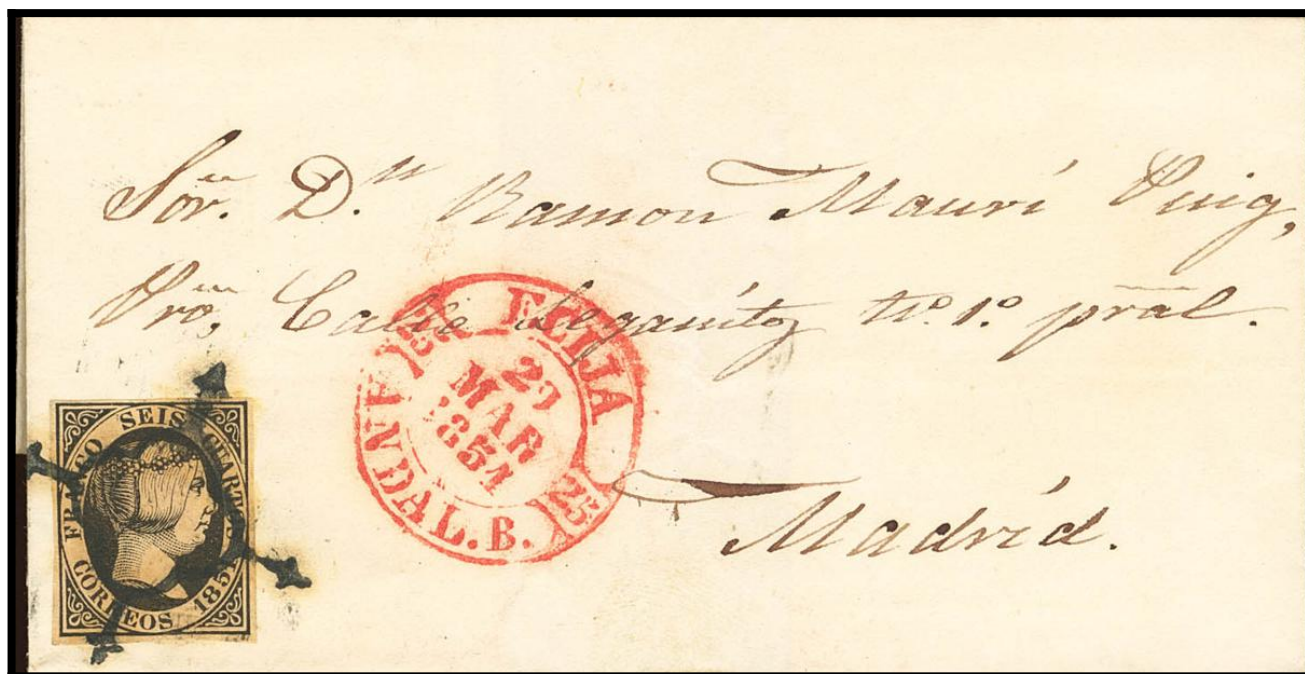 Sor. D.n Ramon Maurí Puig,
Pro, Calle Leganítoz No. 1o. pral.
Madríd.
ECIJA
25
29
MAR
1851
ANDAL.B.
25
FRANCO SEIS CUARTOS
CORREOS 1851